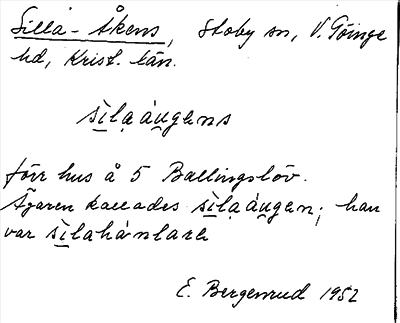 Silla-Åkens, Stoby sn, V. Göinge
hd, Krist. län.
sìlaáugens
förr hus å 5 Ballingslöv.
Ägaren kallades sìlaáugen; han
var sìlahánlare
E. Bergenrud 1952